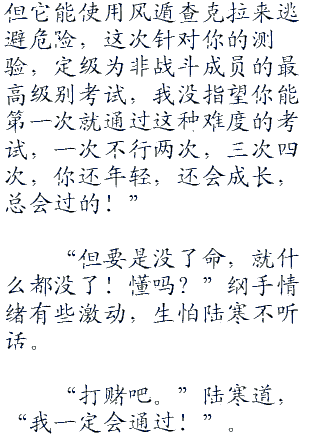 但它能使用风遁查克拉来逃
避危险，这次针对你的测
验，定级为非战斗成员的最
高级别考试，我没指望你能
第一次就通过这种难度的考
试，一次不行两次，三次四
次，你还年轻，还会成长，
总会过的！”
“但要是没了命，就什
么都没了！懂吗？”纲手情
绪有些激动，生怕陆寒不听
话。
“打赌吧。”陆寒道，
“我一定会通过！”。